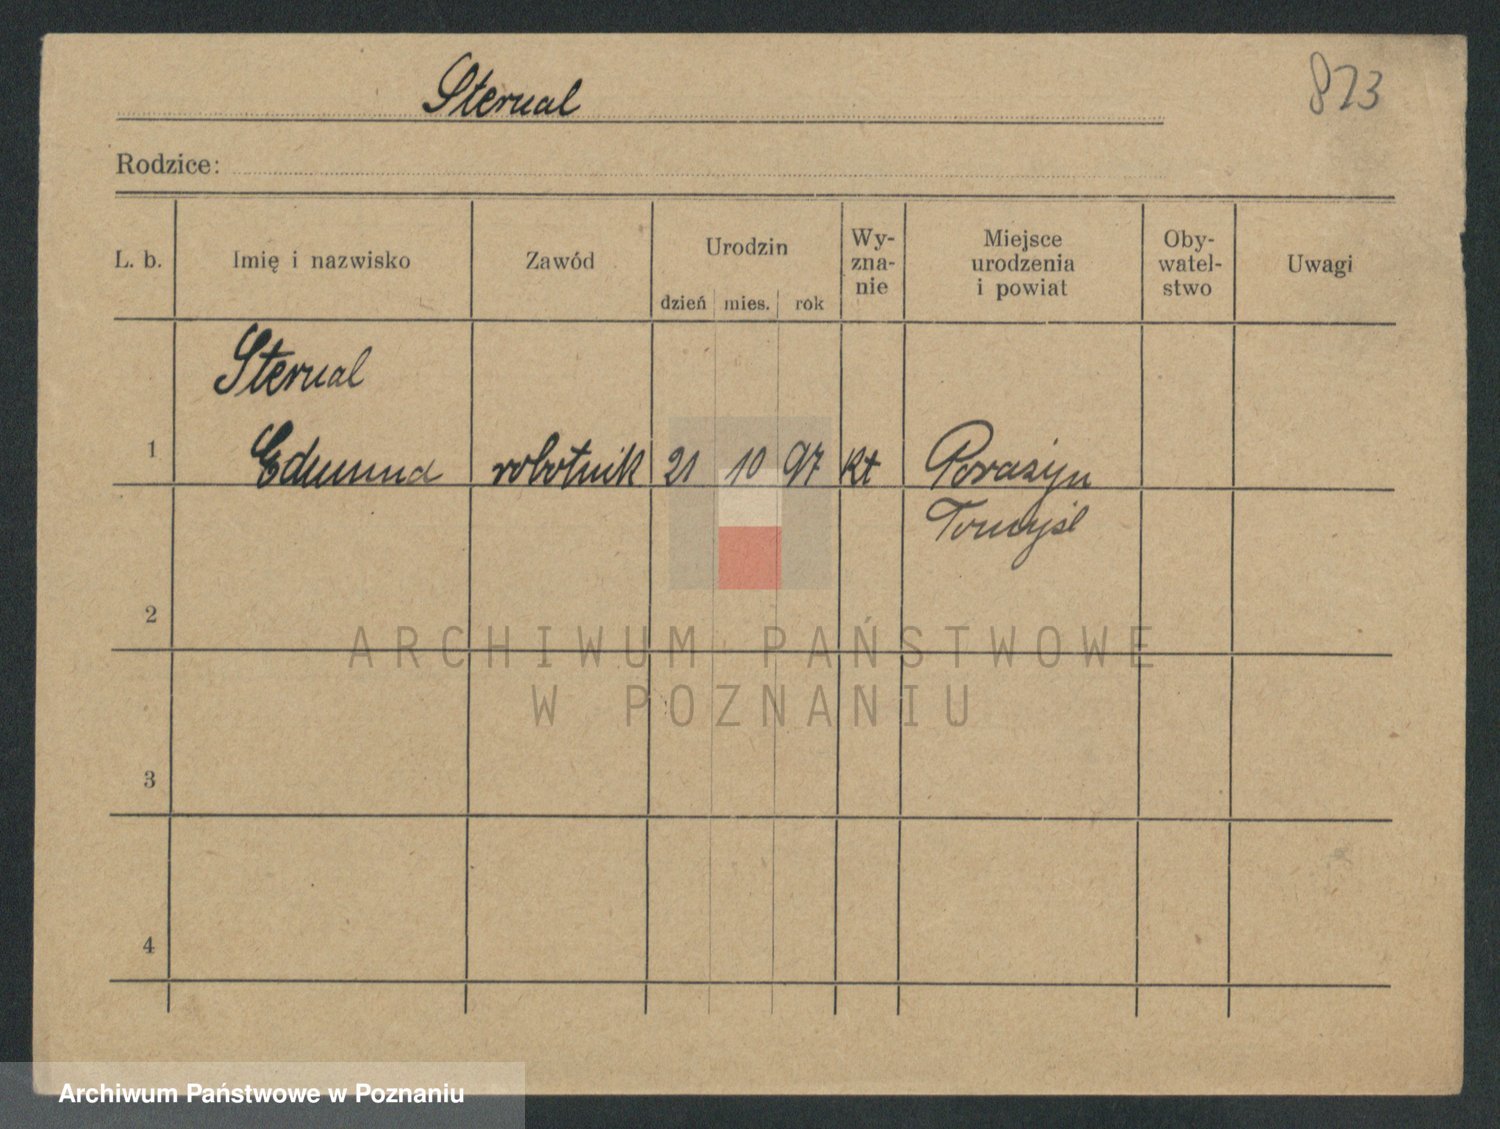 Sternal
873
Rodzice:
L. b.
Imię i nazwisko
Zawód
Urodzin
dzień
mies.
rok
Wy-
zna-
nie
Miejsce
urodzenia
i powiat
Oby-
watel-
stwo
Uwagi
Sternal
1 Edmund robotnik 21 10 97 kt Porażyn
Tomyśl
2
3
4
ARCHIWUM PAŃSTWOWE
W POZNANIU
Archiwum Państwowe w Poznaniu